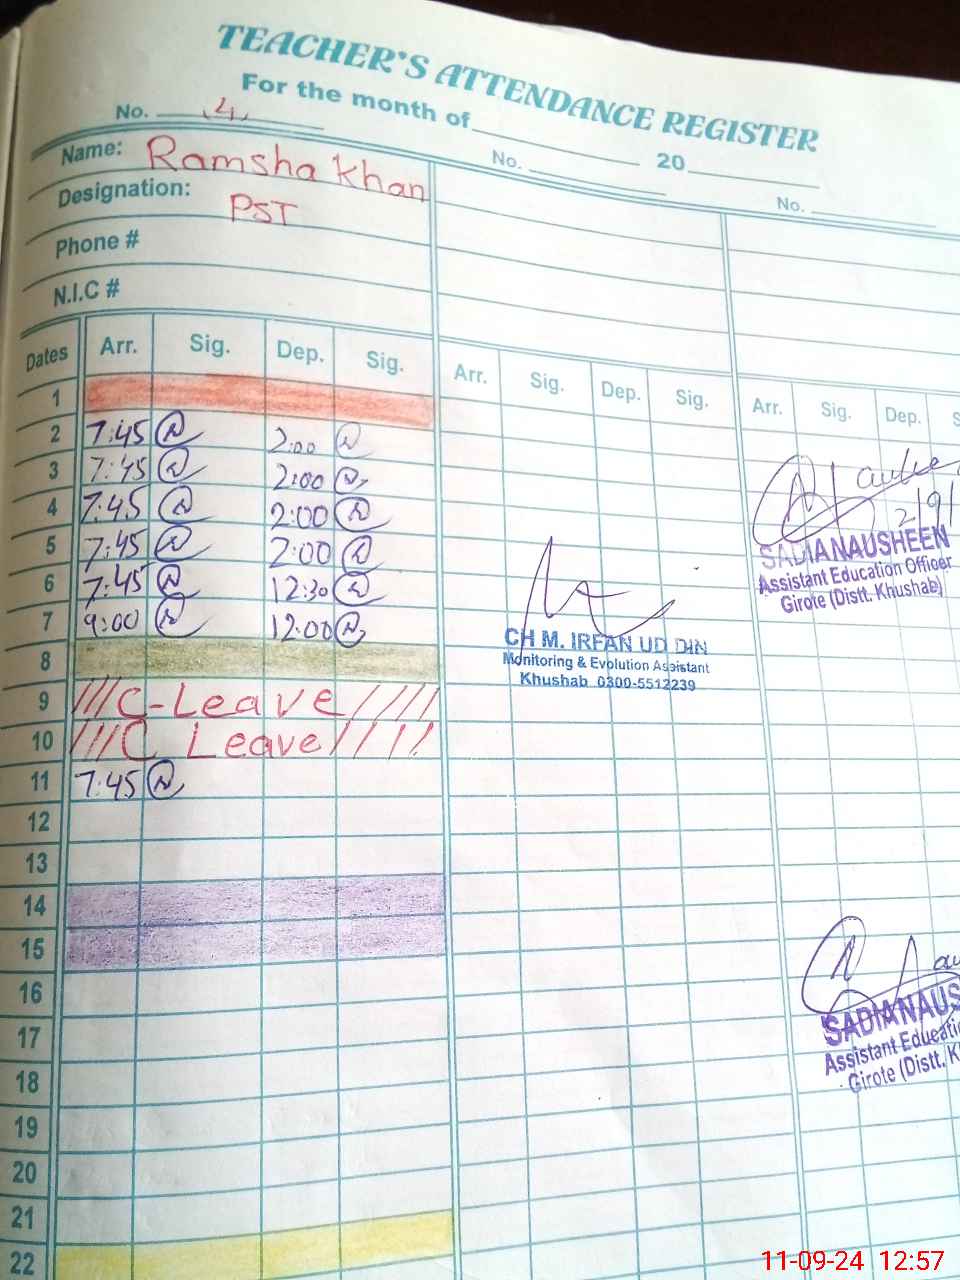 TEACHER'S ATTENDANCE REGISTER
For the month of 20
No. 4 No. No.
Name: Ramsha Khan
Designation: PST
Phone #
N.I.C #
Dates Arr. Sig. Dep. Sig. Arr. Sig. Dep. Sig. Arr. Sig. Dep. S
1
2 7:45 2:00
3 7:45 2:00
4 7:45 2:00
5 7:45 2:00
6 7:45 12:30
7 9:00 12:00
8
9 C-Leave
10 C Leave
11 7:45
12
13
14
15
16
17
18
19
20
21
22
2/9/
SADIANAUSHEEN
Assistant Education Officer
Girote (Distt. Khushab)
CH M. IRFAN UD DIN
Monitoring & Evolution Assistant
Khushab 0300-5512239
SADIANAUS
Assistant Educati
Girote (Distt. K
11-09-24 12:57